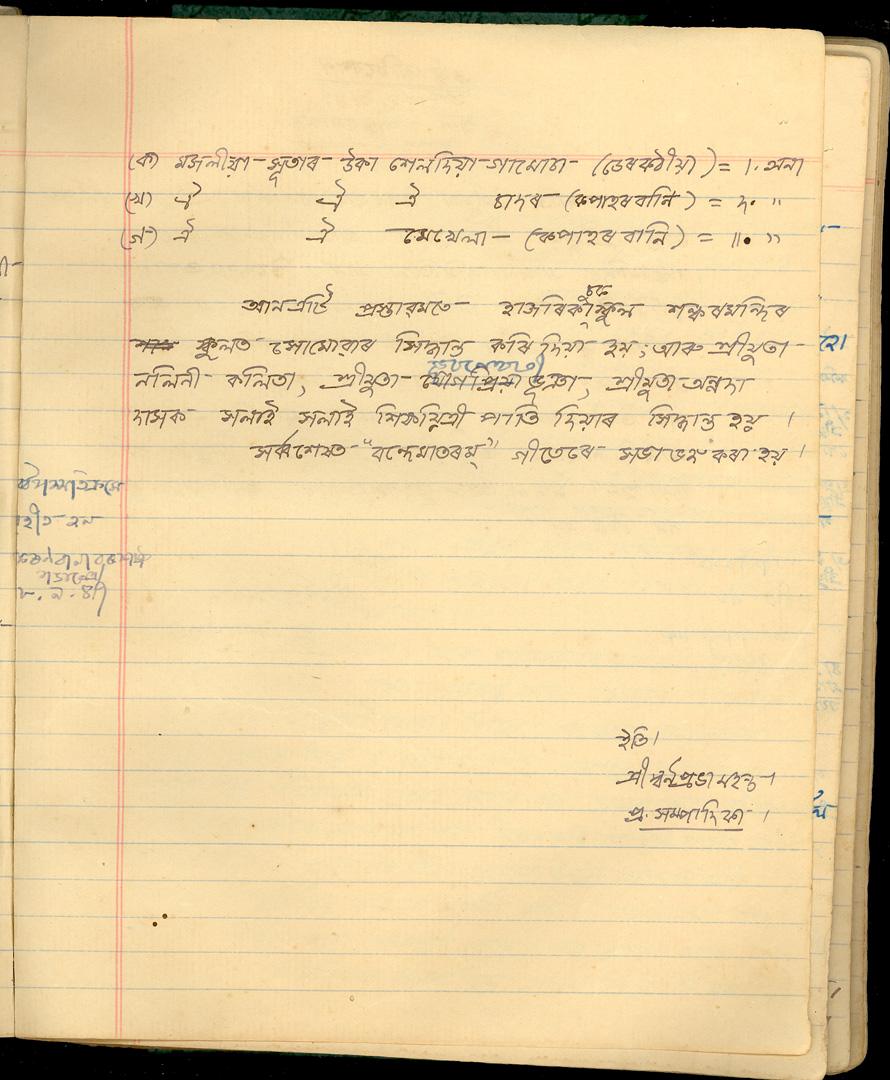 (ক) মজলীয়া সূতাৰ উকা শেলদিয়া গামোচা (ডেৰকঠীয়া) = ৷. অনা
(খ) ঐ ঐ ঐ চাদৰ (কপাহৰ বানি) = ৸. "
(গ) ঐ ঐ মেখেলা — (কপাহৰ বানি) = ৷৷. "
আন এটি প্ৰস্তাৱমতে হাজৰিকা স্কুল শঙ্কৰমন্দিৰ
স্কুলত সোমোৱাৰ সিদ্ধান্ত কৰি দিয়া হয়; আৰু শ্ৰীযুতা
নলিনী কলিতা, শ্ৰীযুতা ভূঞা, শ্ৰীযুতা অন্নদা
দাসক সলাই সলাই শিক্ষয়িত্ৰী পাতি দিয়াৰ সিদ্ধান্ত হয় ।
সৰ্ব্বশেষত "বন্দেমাতৰম্" গীতেৰে সভা ভঙ্গ কৰা হয় ।
ইতি।
শ্ৰীস্বৰ্ণপ্ৰভা মহন্ত ।
প্ৰ. সম্পাদিকা ।